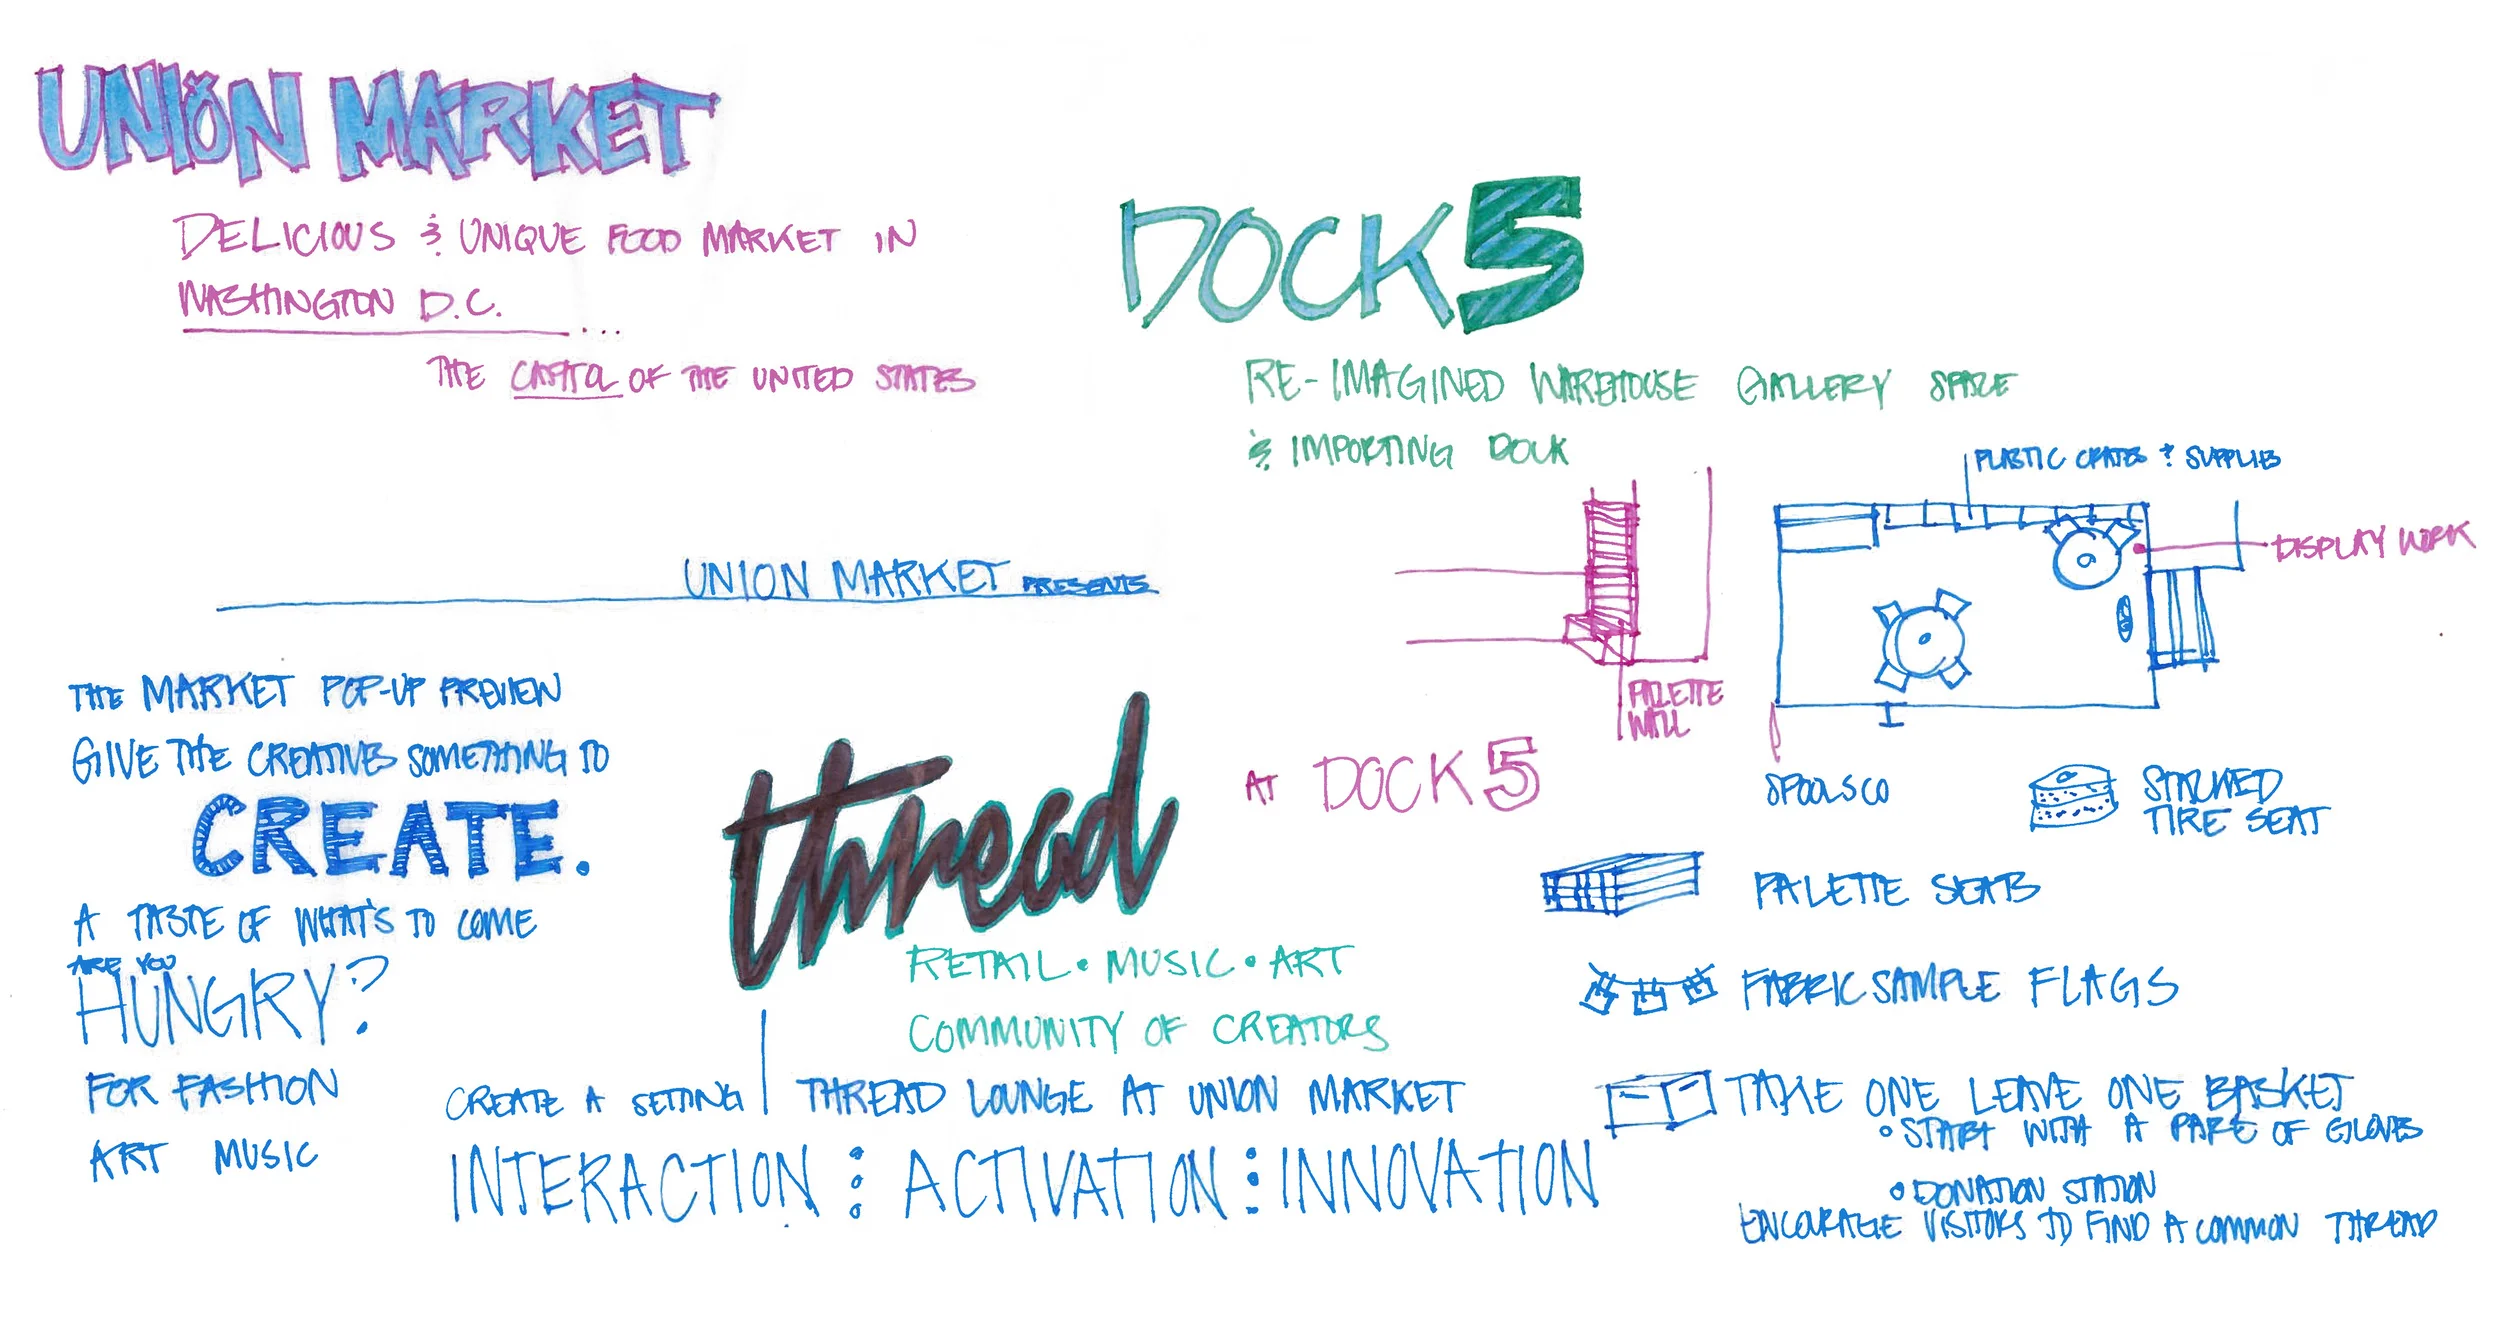 UNION MARKET
DELICIOUS & UNIQUE FOOD MARKET IN
WASHINGTON D.C.
...
THE CAPITOL OF THE UNITED STATES
DOCK 5
RE-IMAGINED WAREHOUSE GALLERY SPACE
& IMPORTING DOCK
PLASTIC CRATES & SUPPLIES
DISPLAY WORK
PALETTE
WALL
UNION MARKET PRESENTS
THE MARKET POP-UP PREVIEW
GIVE THE CREATIVES SOMETHING TO
CREATE.
A TASTE OF WHAT'S TO COME
ARE YOU
HUNGRY?
FOR FASHION
ART MUSIC
thread
AT DOCK 5
RETAIL • MUSIC • ART
COMMUNITY OF CREATORS
CREATE A SETTING
THREAD LOUNGE AT UNION MARKET
INTERACTION : ACTIVATION : INNOVATION
SPOOLSCO
STACKED
TIRE SEAT
PALETTE SEATS
FABRIC SAMPLE FLAGS
TAKE ONE LEAVE ONE BASKET
• START WITH A PARE OF GLOVES
• DONATION STATION
ENCOURAGE VISITORS TO FIND A COMMON THREAD